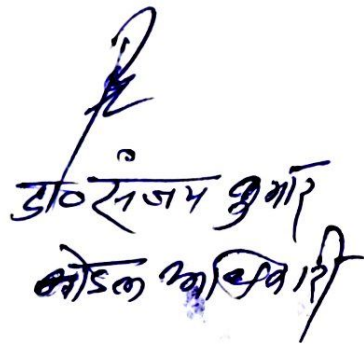 डा० संजय कुमार
नोडल अधिकारी